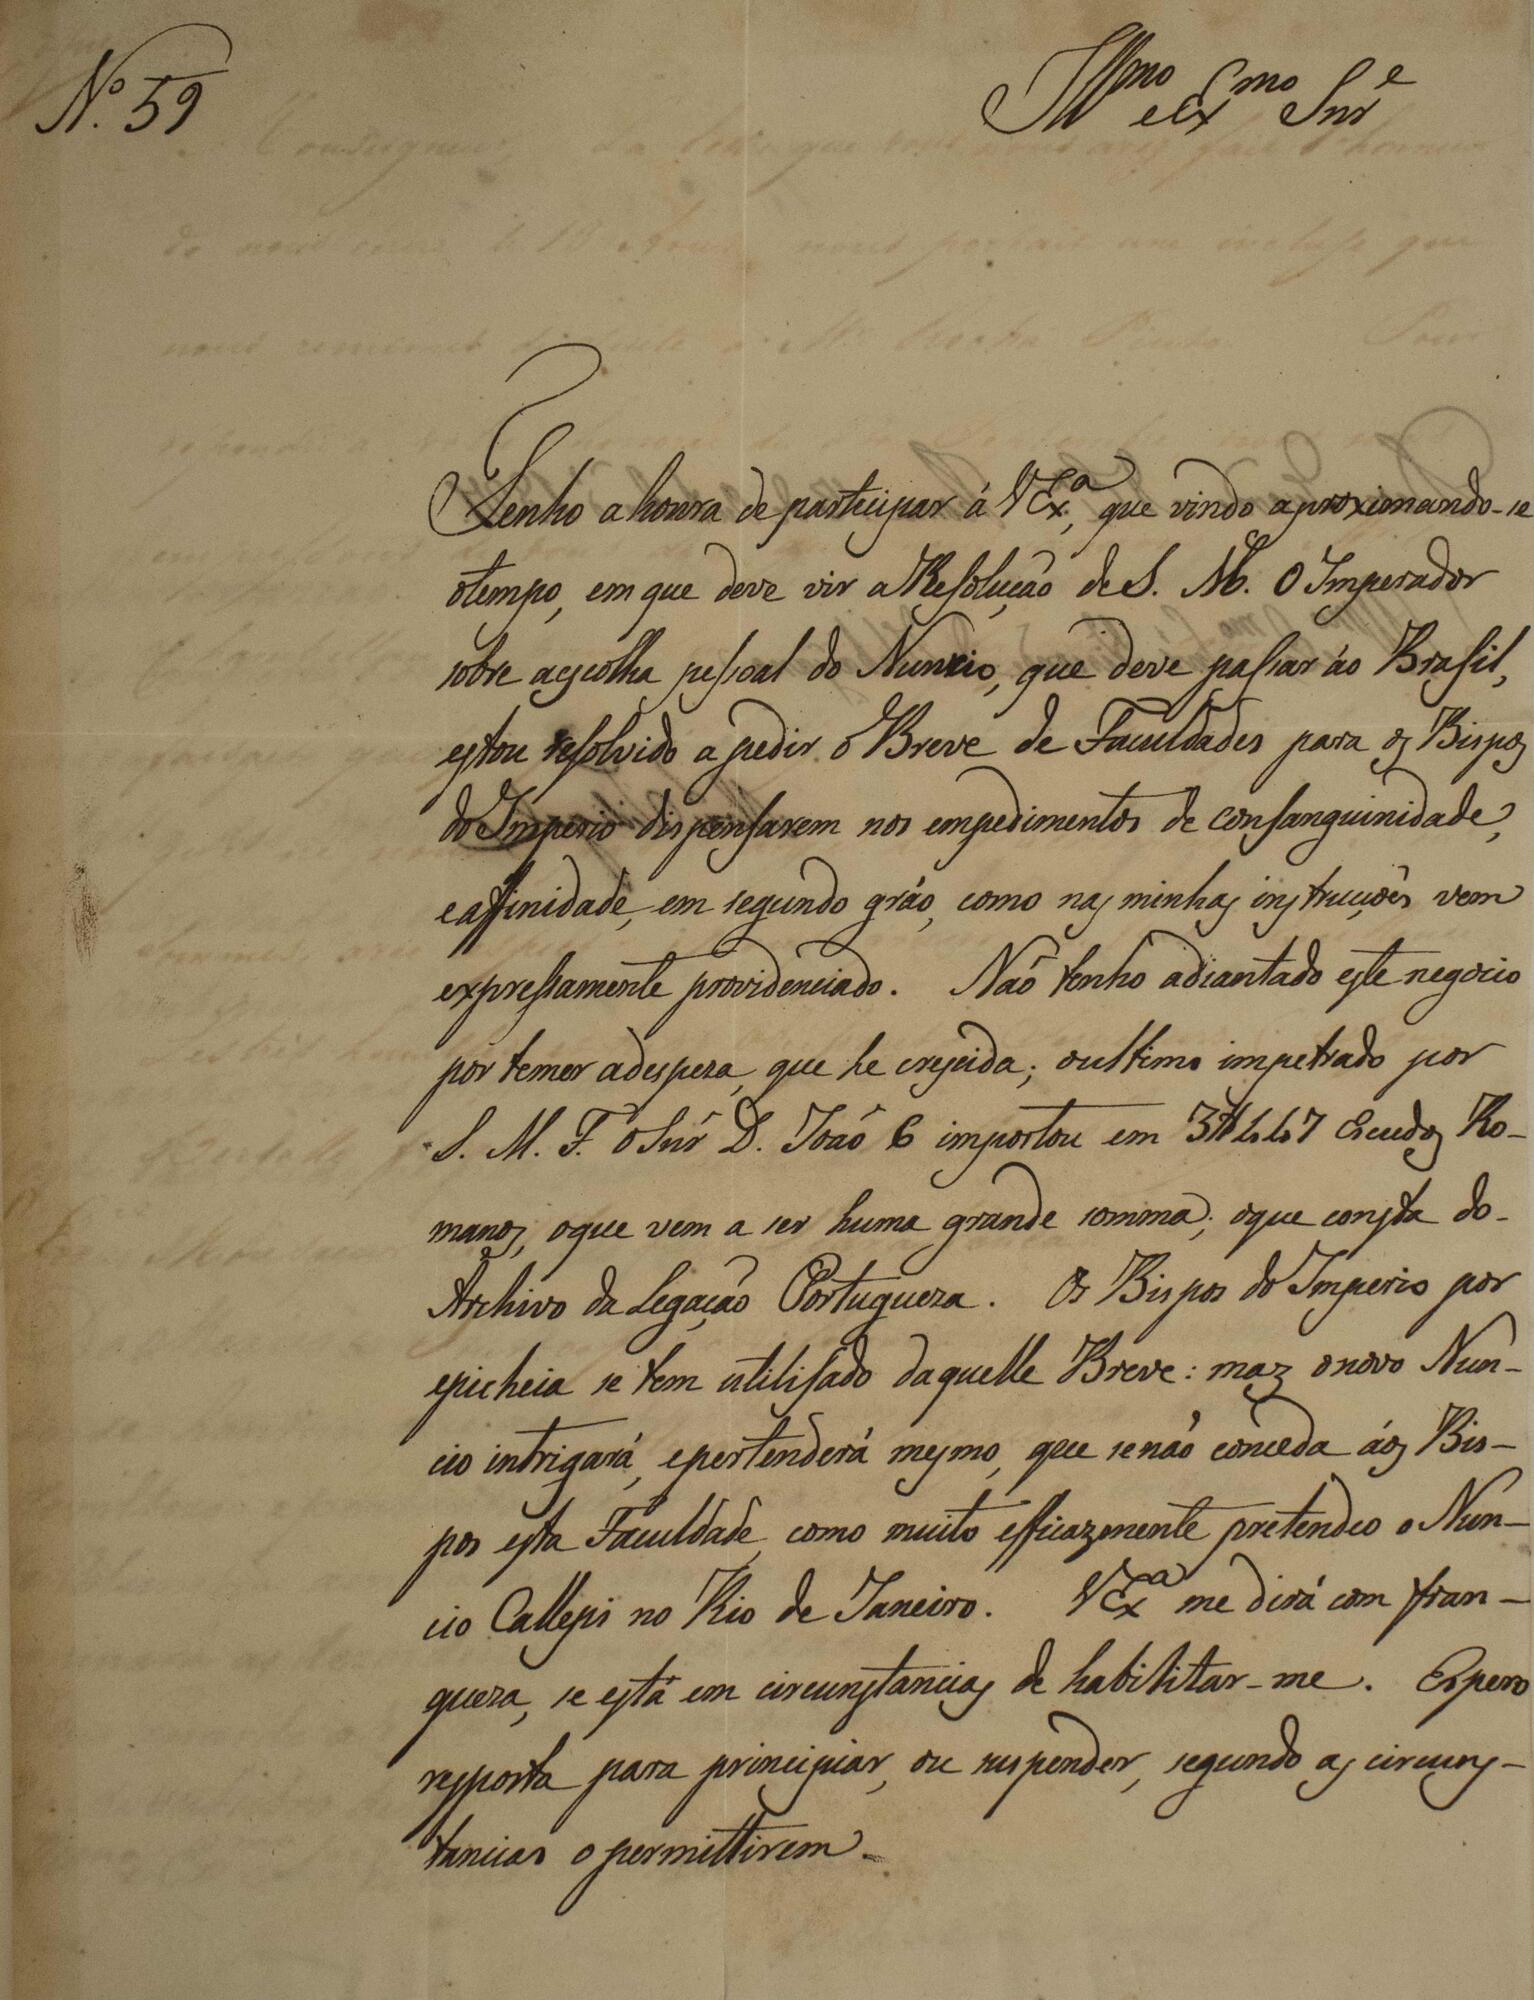 Nº 59
Illmo e Exmo Snre
Tenho a honra de participar á VExª, que vindo aproximando-se
o tempo, em que deve vir a Resolução de S. M. O Imperador
sobre a escolha pessoal do Nuncio, que deve passar áo Brasil,
estou resolvido a pedir o Breve de Faculdades para os Bispos
do Imperio dispensarem nos empedimentos de consanguinidade,
e affinidade, em segundo gráo, como nas minhas instrucções vem
expressamente providenciado. Naõ tenho adiantado este negocio
por temer a despeza, que he crescida; o ultimo impetrado por
S. M. F. o Snr̃ D. Joaõ 6 importou em Escudos Ro-
manos, o que vem a ser huma grande somma; o que consta do
Archivo da Legação Portugueza. Os Bispos do Imperio por
epicheia se tem utilisado daquelle Breve: mas o novo Nun-
cio intrigará, e pertenderá mesmo, que se não conceda áos Bis-
pos esta Faculdade, como muito efficazmente pretendeo o Nun-
cio Calleppi no Rio de Janeiro. VExª me dirá com fran-
queza, se está em circunstancias de habilitar-me. Espero
resposta para principiar, ou suspender, segundo as circuns-
tancias o permittirem.